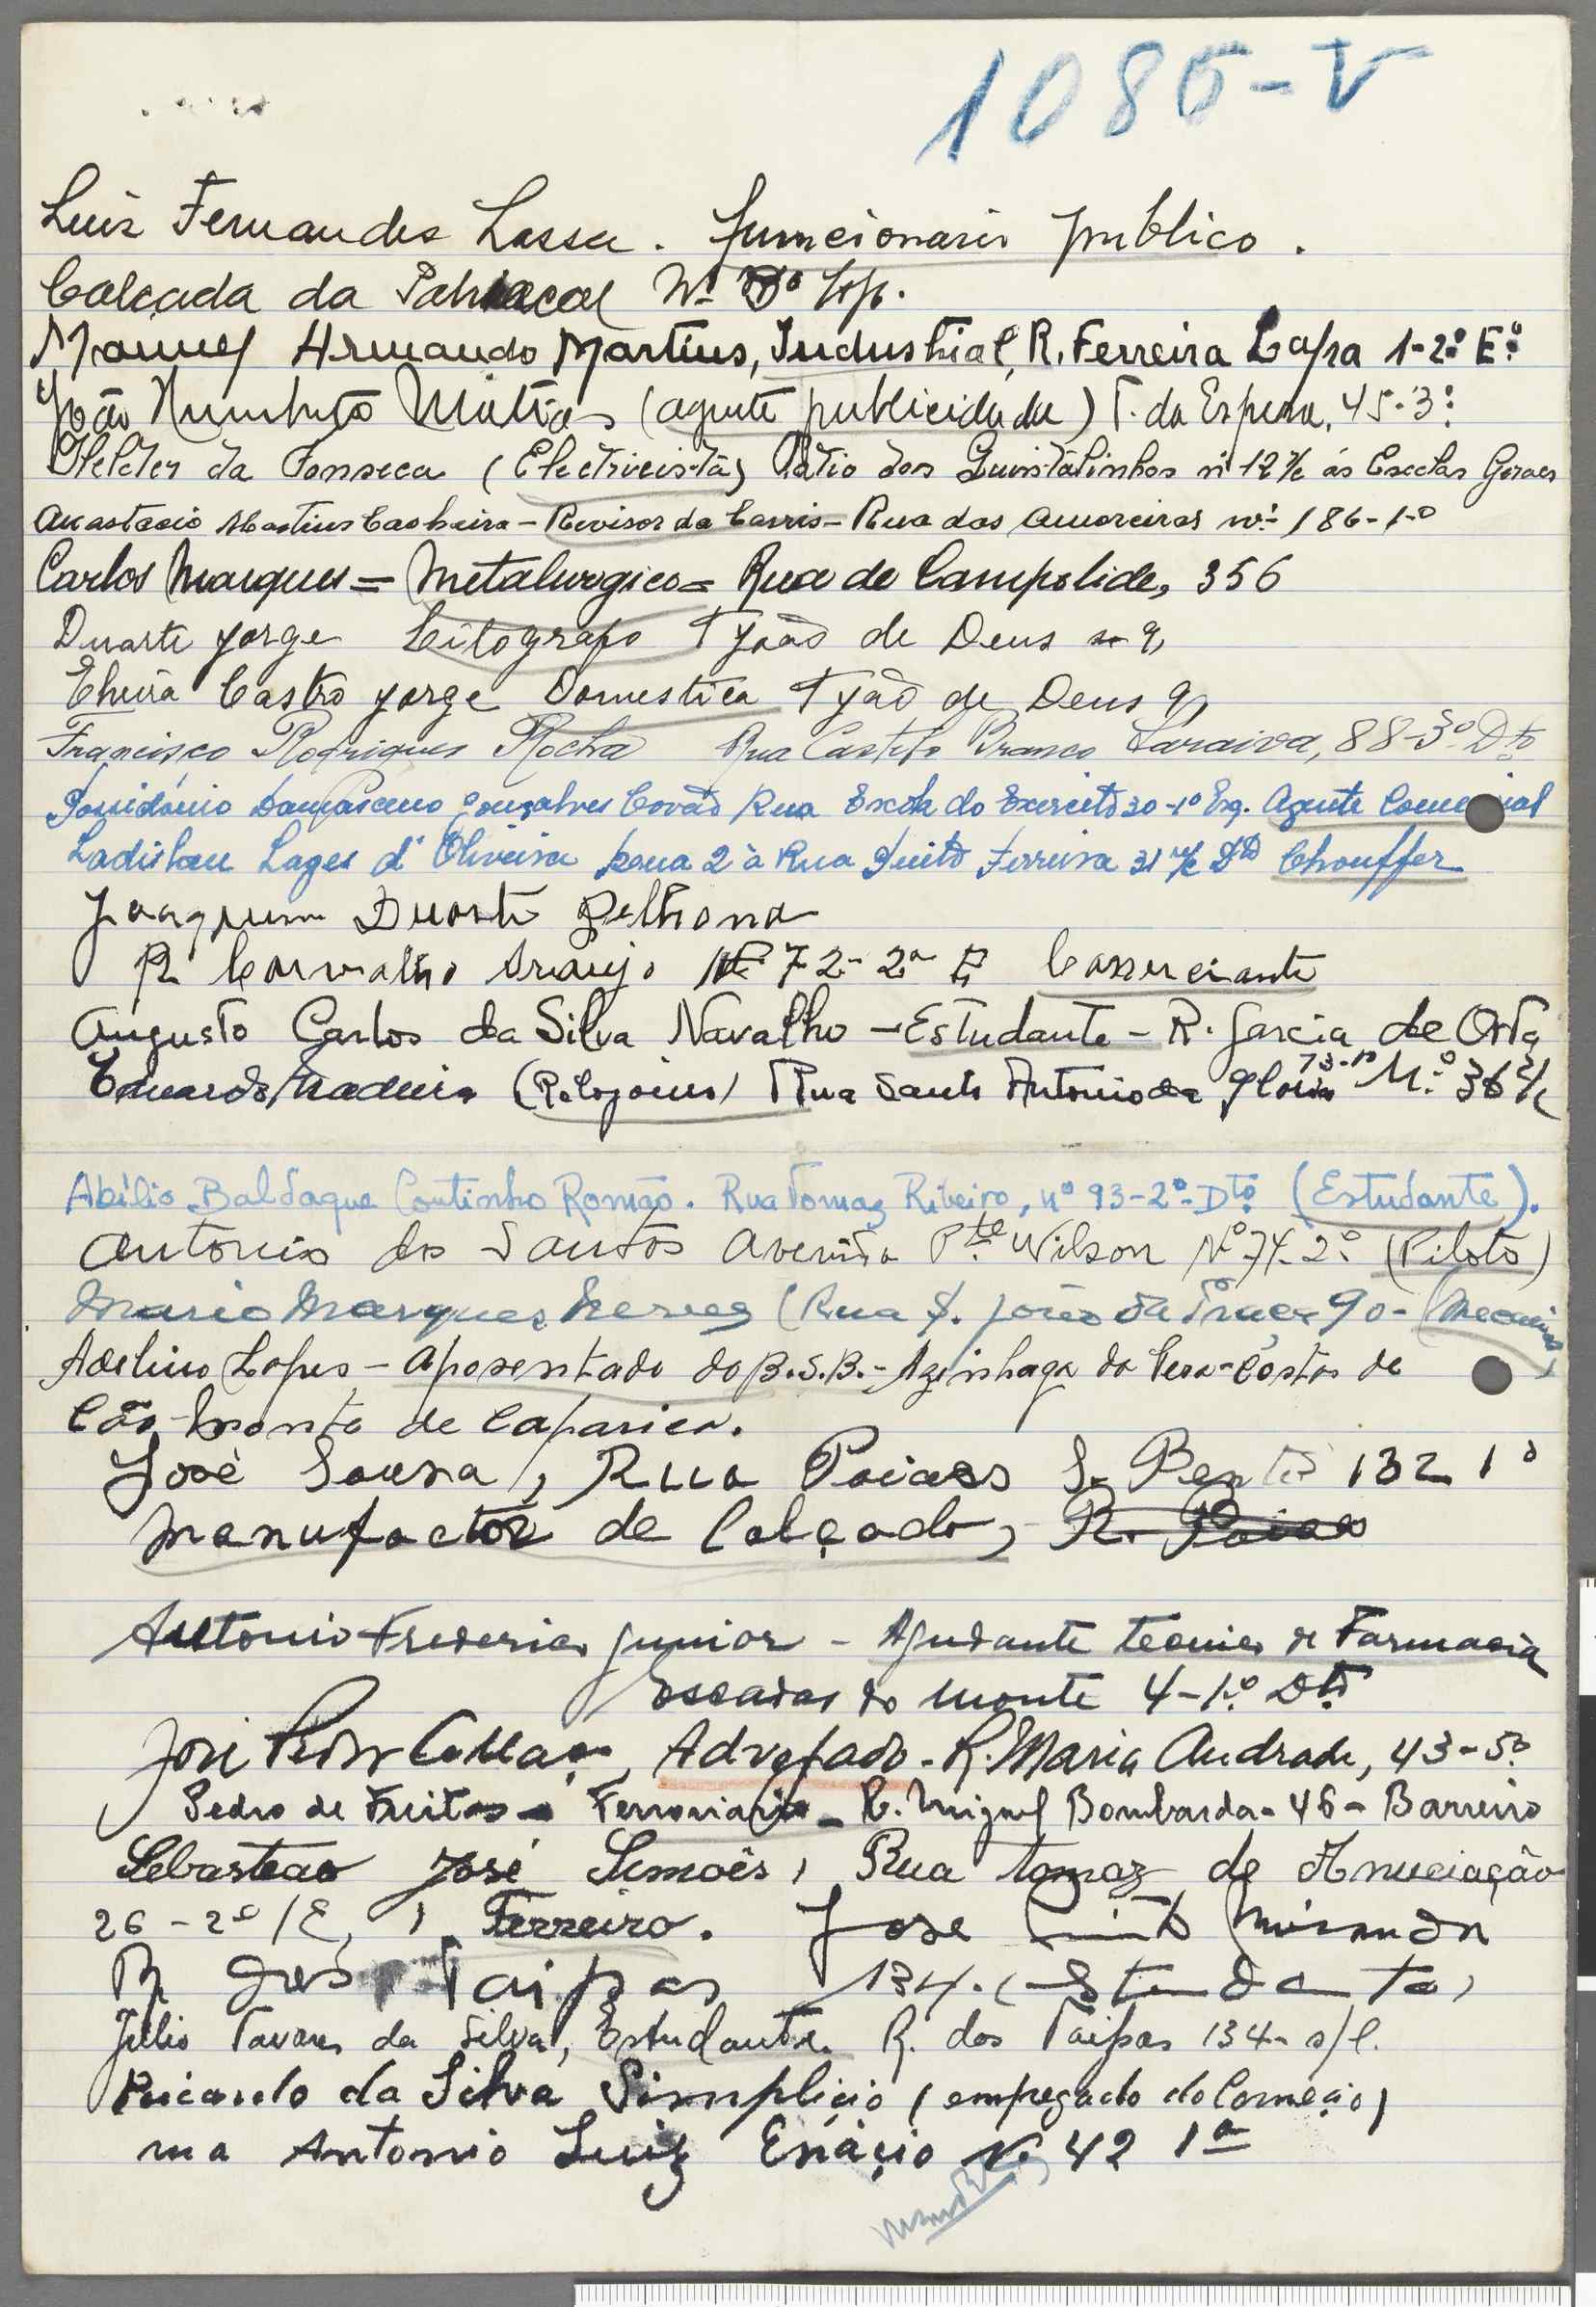 1085-V
Luis Fernandes Lassa. funcionario publico.
Calçada da Patriacal Nº
Manuel Armando Martins, Industrial, R. Ferreira Lapa 1-2º Eº
João Humberto Mattos (agente publicidade) T. da Espera, 45-3º
Helder da Fonseca (Electricista) Pátio dos Quintalinhos nº 12 r/c ás Escolas Geraes
Anastacio Martins Casheira - Revisor da Carris - Rua das Amoreiras nº 186-1º
Carlos Marques = Metalurgico = Rua de Campolide, 356
Duarte Jorge Litografo T João de Deus 9
Elvira Castro Jorge Domestica T João de Deus 9
Francisco Rodrigues Rocha Rua Castelo Branco Saraiva, 88-3º Dto
Possidónio Damasceno Gonçalves Covão Rua Escola do Exercito 30-1º Esq. Agente Comercial
Ladislau Lages d'Oliveira Rua 2 à Rua Quito Ferreira 31 r/c Dto Chouffer
Joaquim Duarte
R Carvalho Araujo Nº 72-2º E Comerciante
Augusto Carlos da Silva Navalho - Estudante - R. Garcia de Orta
73-1º
Eduardo Madeira (Relojoeiro) Rua Santo Antonio da Gloria N.º 36 r/c
Abílio Baldaque Coutinho Romão. Rua Tomaz Ribeiro, nº 93-2º-Dtº (Estudante).
Antonio dos Santos Avenida Pte Wilson Nº 74-2º (Piloto)
Mario Marques Neves (Rua S. João da Praça 90-
Adelino Lopes - Aposentado do B.S.B. - Azinhaga da Vera-Costas de
Cão-Monte de Caparica.
José Sousa, Rua Poiaes S. Bento 132 1º
Manufactor de Calçado, R. Poiaes
Antonio Frederico Junior - Ajudante tecnico de Farmacia
Escadas do Monte 4-1º Dtº
José Pedro Collaço, Advogado - R. Maria Andrade, 43-5º
Pedro de Freitas - Ferroviario - R. Miguel Bombarda - 46 - Barreiro
Sebasteao José Simoês, Rua Tomaz de Anuciação
26-2º/E, Ferreiro. Jose Pinto Miranda
R das Taipas 134. (Estudante)
Júlio Tavares da Silva, Estudante. R. das Taipas 134- s/l.
Ricardo da Silva Simplicio (empregado do Começio)
rua Antonio Luiz Enáçio Nº 42 1º